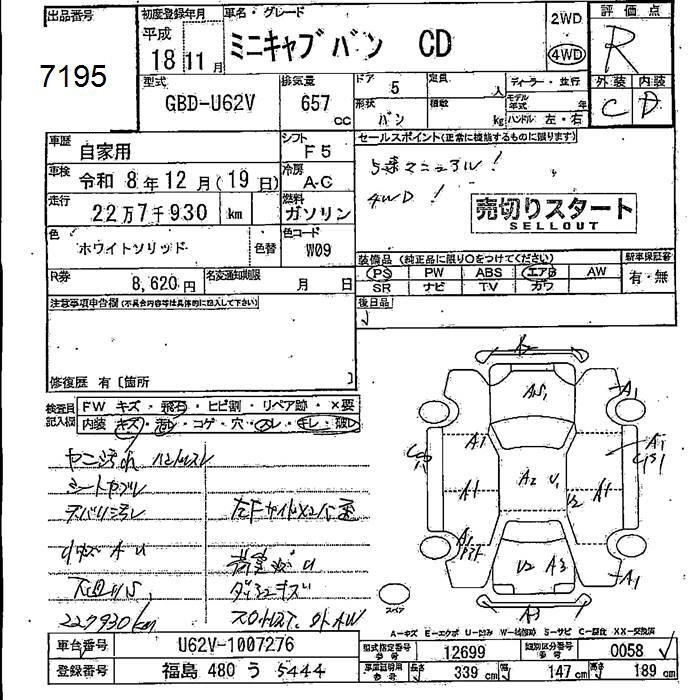 出品番号
7195
初度登録年月
平成
18 11月
車名・グレード
ミニキャブ バン CD
2WD
4WD
評価点
R
外装 内装
C D
型式
GBD-U62V
排気量
657 cc
ドア 5
定員 人
形状 バン
積載 kg
ディーラー・並行
モデル年式 年
ハンドル 左・右
車歴
自家用
シフト
F5
車検
令和 8年 12月 (19日)
冷房
A.C
走行
22万7千930 km
燃料
ガソリン
色
ホワイトソリッド
色替
色コード
W09
R券
8,620円
名変通知期限
月 日
セールスポイント(正常に機能するものに限ります)
5速マニュアル!
4WD!
売切りスタート
SELLOUT
装備品 (純正品に限り○をつけてください)
PS PW ABS エアB AW
SR ナビ TV カワ
新車保証書
有・無
後日品
注意事項申告欄(不具合内容等は具体的に記入して下さい)
修復歴 有〔箇所 〕
検査員記入欄
FW キズ・飛石・ヒビ割・リペア跡・×要
内装 キズ・汚レ・コゲ・穴・スレ・キレ・破レ
ヤニ汚れ ハンドルスレ
シートヤブレ
下廻りS
227930km
ダッシュキズ
A2 U1
A1
A1
U2
A1
A1
A1
U2 A3
A1
A3
スペア
A-キズ E-エクボ U-凹ミ W-補修跡 S-サビ C-腐食 XX-交換済
車台番号
U62V-1007276
型式指定番号
12699
類別区分番号
0058
登録番号
福島 480 う 5444
長さ 339 cm
幅 147 cm
高さ 189 cm